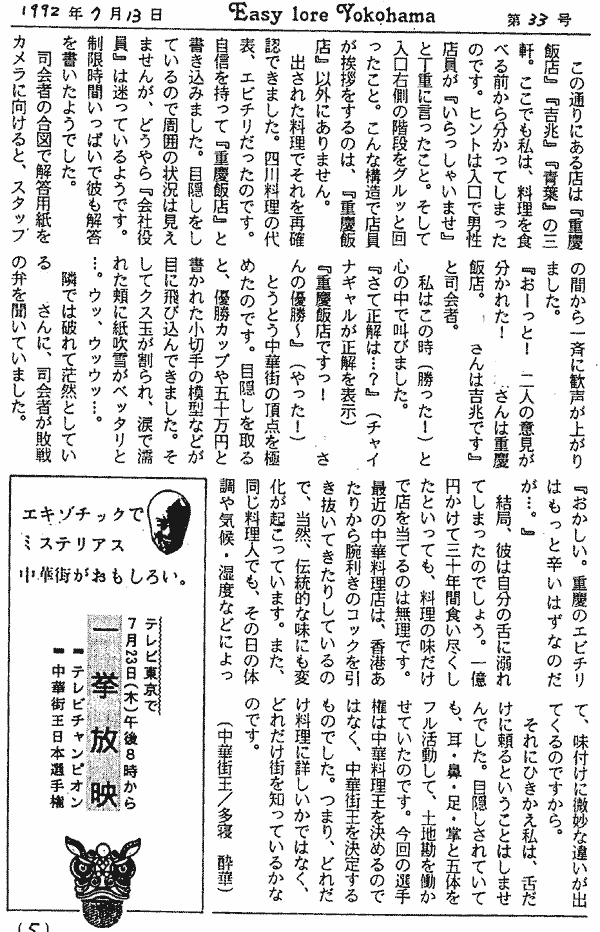 1992年7月13日
Easy lore Yokohama
第33号
この通りにある店は『重慶
飯店』『吉兆』『青葉』の三
軒。ここでも私は、料理を食
べる前から分かってしまった
のです。ヒントは入口で男性
店員が『いらっしゃいませ』
と丁重に言ったこと。そして
入口右側の階段をグルッと回
ったこと。こんな構造で店員
が挨拶をするのは、『重慶飯
店』以外にありません。
出された料理でそれを再確
認できました。四川料理の代
表、エビチリだったのです。
自信を持って『重慶飯店』と
書き込みました。目隠しをし
ているので周囲の状況は見え
ませんが、どうやら『会社役
員』は迷っているようです。
制限時間いっぱいで彼も解答
を書いたようでした。
司会者の合図で解答用紙を
カメラに向けると、スタッフ
の間から一斉に歓声が上がり
ました。
『おーっと! 二人の意見が
分かれた! さんは重慶
飯店。 さんは吉兆です』
と司会者。
私はこの時(勝った!)と
心の中で叫びました。
『さて正解は…?』(チャイ
ナギャルが正解を表示)
『重慶飯店ですっ! さ
んの優勝~』(やった!)
とうとう中華街の頂点を極
めたのです。目隠しを取る
と、優勝カップや五十万円と
書かれた小切手の模型などが
目に飛び込んできました。そ
してクス玉が割られ、涙で濡
れた頬に紙吹雪がベッタリと
…。ウッ、ウッウッ…。
隣では破れて茫然としてい
る さんに、司会者が敗戦
の弁を聞いていました。
『おかしい。重慶のエビチリ
はもっと辛いはずなのだ
が…。』
結局、彼は自分の舌に溺れ
てしまったのでしょう。一億
円かけて三十年間食い尽くし
たといっても、料理の味だけ
で店を当てるのは無理です。
最近の中華料理店は、香港あ
たりから腕利きのコックを引
き抜いてきたりしているの
で、当然、伝統的な味にも変
化が起こっています。また、
同じ料理人でも、その日の体
調や気候・湿度などによっ
て、味付けに微妙な違いが出
てくるのですから。
それにひきかえ私は、舌だ
けに頼るということはしませ
んでした。目隠しされていて
も、耳・鼻・足・掌と五体を
フル活動して、土地勘を働か
せていたのです。今回の選手
権は中華料理王を決めるので
はなく、中華街王を決定する
ものでした。つまり、どれだ
け料理に詳しいかではなく、
どれだけ街を知っているかな
のです。
(中華街王/多寝 酔華)
エキゾチックで
ミステリアス
中華街がおもしろい。
テレビ東京で
7月23日(木)午後8時から
一挙放映
■テレビチャンピオン
■中華街王日本選手権
(5)